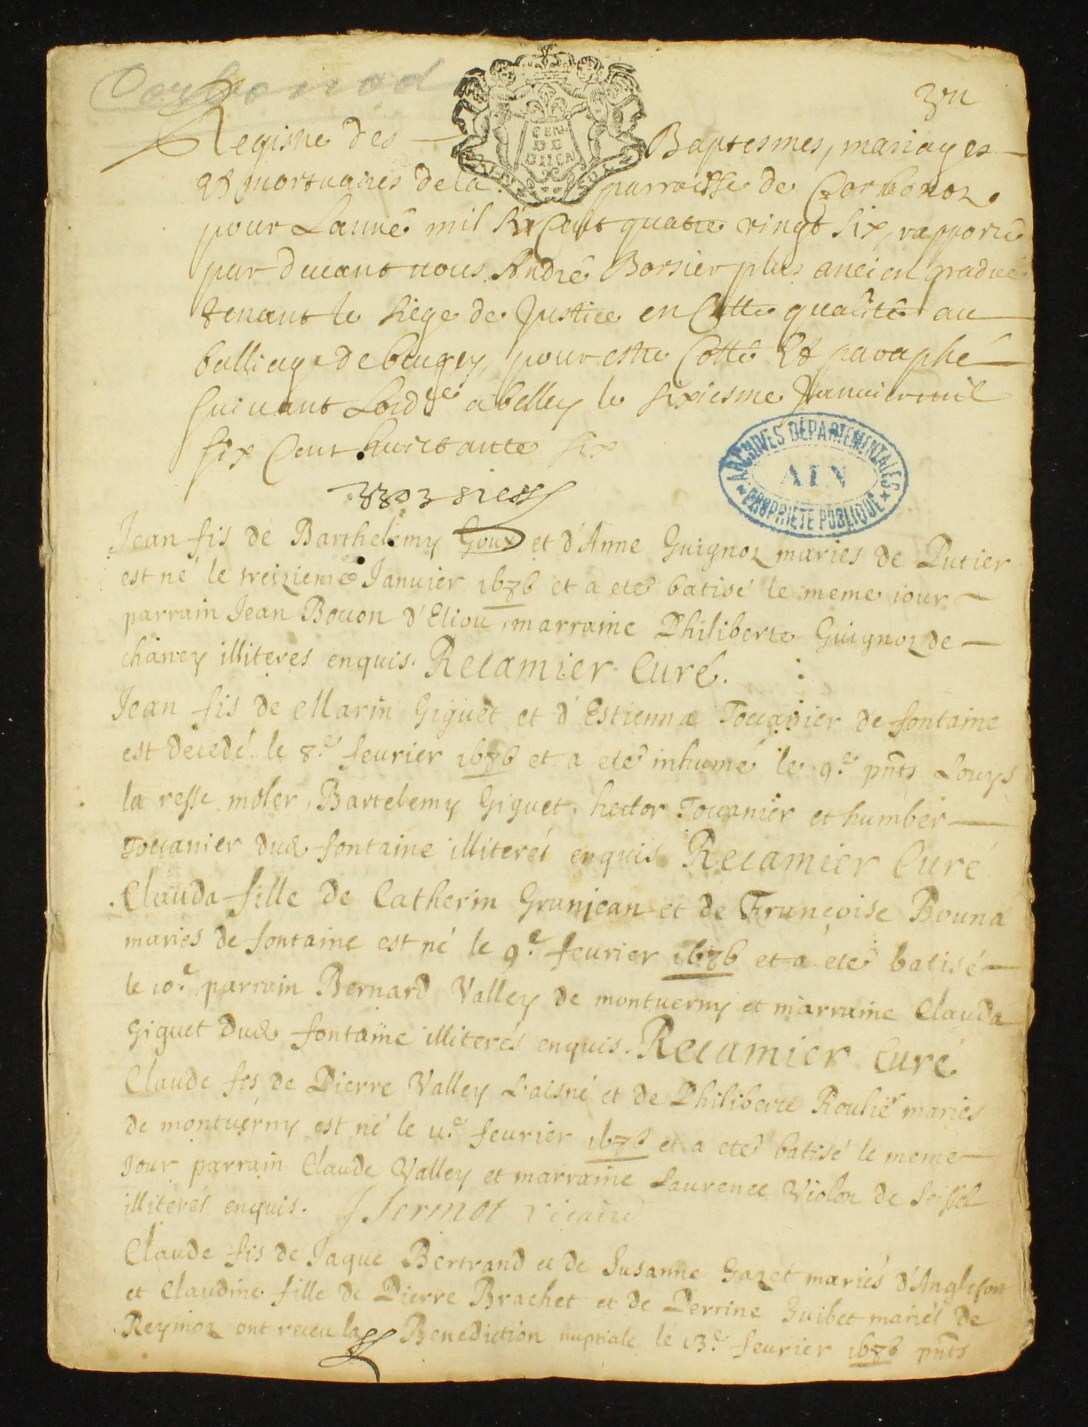 Corbonod
Registre des Baptesmes, mariages
et mortuaires de la parroisse de Corbonoz
pour Lanneé mil six Cent quatre vingt six, rapporté
par devant nous André Borsier plus ancien gradué
tenant le siege de Justice en Cette qualité au
balliage de beugey, pour estre Cotté Et paraphé
suivant Lordce a belley le sixiesme Janvier mil
six Cent huictante six
Jean fis de Barthelemy Goux et d'Anne Guignoz maries de Putier
est né le treizieme Janvier 1686 et a eté batisé le meme iour
parrain Jean Bouon d'Eliou, marraine Philiberte Guignoz de
chanvey illiteres enquis. Recamier Curé.
Jean fis de Marin Giguet et d'Estienna Toccanier de fontaine
est decedé le 8.e feurier 1686 et a eté inhumé le 9.e pnts Louys
la resse moler, Bartelemy Giguet, hector Toccanier et humber
Toccanier dud fontaine illiterés enquis Recamier Curé
Clauda fille de Catherin Granjean et de Françoise Bouna
maries de fontaine est né le 9.e feurier 1686 et a été batisé
le 10.e parrain Bernard Valley de montverny et marraine Clauda
Giguet dud fontaine illiterés enquis. Recamier Curé
Claude fis de Pierre Valley L'aisné et de Philiberte Roulié maries
de montverny est né le 11.e feurier 1686 et a eté batisé le meme
Jour parrain Claude Valley et marraine Laurence Violon de Seissel
illiterés enquis. Jsermot vicaire
Claude fis de Jaque Bertrand et de Susanne Gazet mariés d'Anglefort
et Claudine fille de Pierre Brachet et de Perrine Guibet mariés de
Reymoz ont receu la Benediction nuptiale le 13.e feurier 1686 pnts
ARCHIVES DÉPARTEMENTALES
AIN
PROPRIÉTÉ PUBLIQUE